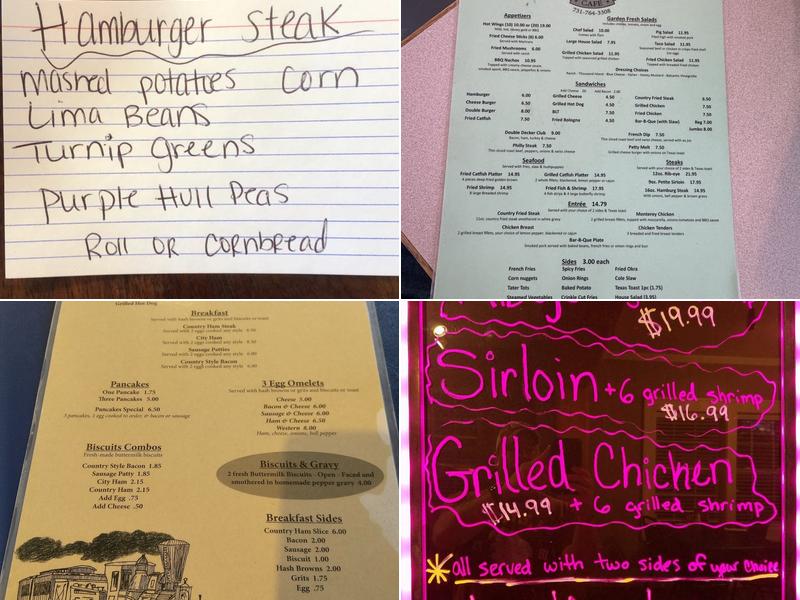 Hamburger Steak
mashed potatoes Corn
Lima Beans
Turnip greens
purple Hull Peas
Roll or cornbread
CAFE
731-764-3308
Appetizers
Hot Wings (10) 10.00 or (20) 19.00
Fried Cheese Sticks (6) 6.00
Served with Marinara
Fried Mushrooms 6.00
Served with ranch
BBQ Nachos 10.95
Garden Fresh Salads
Chef Salad 10.00
Large House Salad 7.95
Grilled Chicken Salad 11.95
Topped with seasoned grilled chicken
Pig Salad 11.95
Taco Salad 11.95
Fried Chicken Salad 11.95
Topped with breaded fried chicken
Dressing Choices
Ranch - Thousand Island - Blue Cheese - Italian - Honey Mustard - Balsamic Vinaigrette
Sandwiches
Hamburger 6.00
Cheese Burger 6.50
Double Burger 8.00
Fried Catfish 7.50
Grilled Cheese 4.50
Grilled Hot Dog 4.50
BLT 7.50
Fried Bologna 4.50
Country Fried Steak 6.50
Grilled Chicken 7.50
Fried Chicken 7.50
Bar-B-Que (with Slaw) Reg 7.00
Jumbo 8.00
Double Decker Club 9.00
Bacon, ham, turkey & cheese
Philly Steak 7.50
French Dip 7.50
Patty Melt 7.50
Seafood
Served with fries, slaw & hushpuppies
Fried Catfish Platter 14.95
Fried Shrimp 14.95
8 large Breaded shrimp
Grilled Catfish Platter 14.95
Fried Fish & Shrimp 17.95
Steaks
Served with your choice of 2 sides & Texas toast
12oz. Rib-eye 21.95
9oz. Petite Sirloin 17.95
16oz. Hamburg Steak 14.95
Entrée 14.79
Served with your choice of 2 sides & Texas toast
Country Fried Steak
Chicken Breast
Monterey Chicken
Chicken Tenders
3 breaded and fried breast tenders
Bar-B-Que Plate
Smoked pork served with baked beans, french fries or onion rings and bun
Sides 3.00 each
French Fries
Corn nuggets
Tater Tots
Steamed Vegetables
Spicy Fries
Onion Rings
Baked Potato
Crinkle Cut Fries
Fried Okra
Cole Slaw
Texas Toast 1pc (1.75)
House Salad (3.95)
Grilled Hot Dog
Breakfast
Served with hash browns or grits and biscuits or toast
Country Ham Steak
Served with 2 eggs cooked any style 8.50
City Ham
Served with 2 eggs cooked any style 8.50
Sausage Patties
Served with 2 eggs cooked any style 6.00
Country Style Bacon
Served with 2 eggs cooked any style 6.00
Pancakes
One Pancake 1.75
Three Pancakes 5.00
Pancakes Special 6.50
3 pancakes, 1 egg cooked to order, & bacon or sausage
3 Egg Omelets
Served with hash browns or grits and biscuits or toast
Cheese 5.00
Bacon & Cheese 6.00
Sausage & Cheese 6.00
Ham & Cheese 6.50
Western 8.00
Ham, cheese, onions, bell pepper
Biscuits Combos
Fresh-made buttermilk biscuits
Country Style Bacon 1.85
Sausage Patty 1.85
City Ham 2.15
Country Ham 2.15
Add Egg .75
Add Cheese .50
Biscuits & Gravy
2 fresh Buttermilk Biscuits - Open - Faced and
smothered in homemade pepper gravy 4.00
Breakfast Sides
Country Ham Slice 6.00
Bacon 2.00
Sausage 2.00
Biscuit 1.00
Hash Browns 2.00
Grits 1.75
Egg .75
$19.99
Sirloin + 6 grilled shrimp
$16.99
Grilled Chicken
$14.99 + 6 grilled shrimp
all served with two sides of your choice